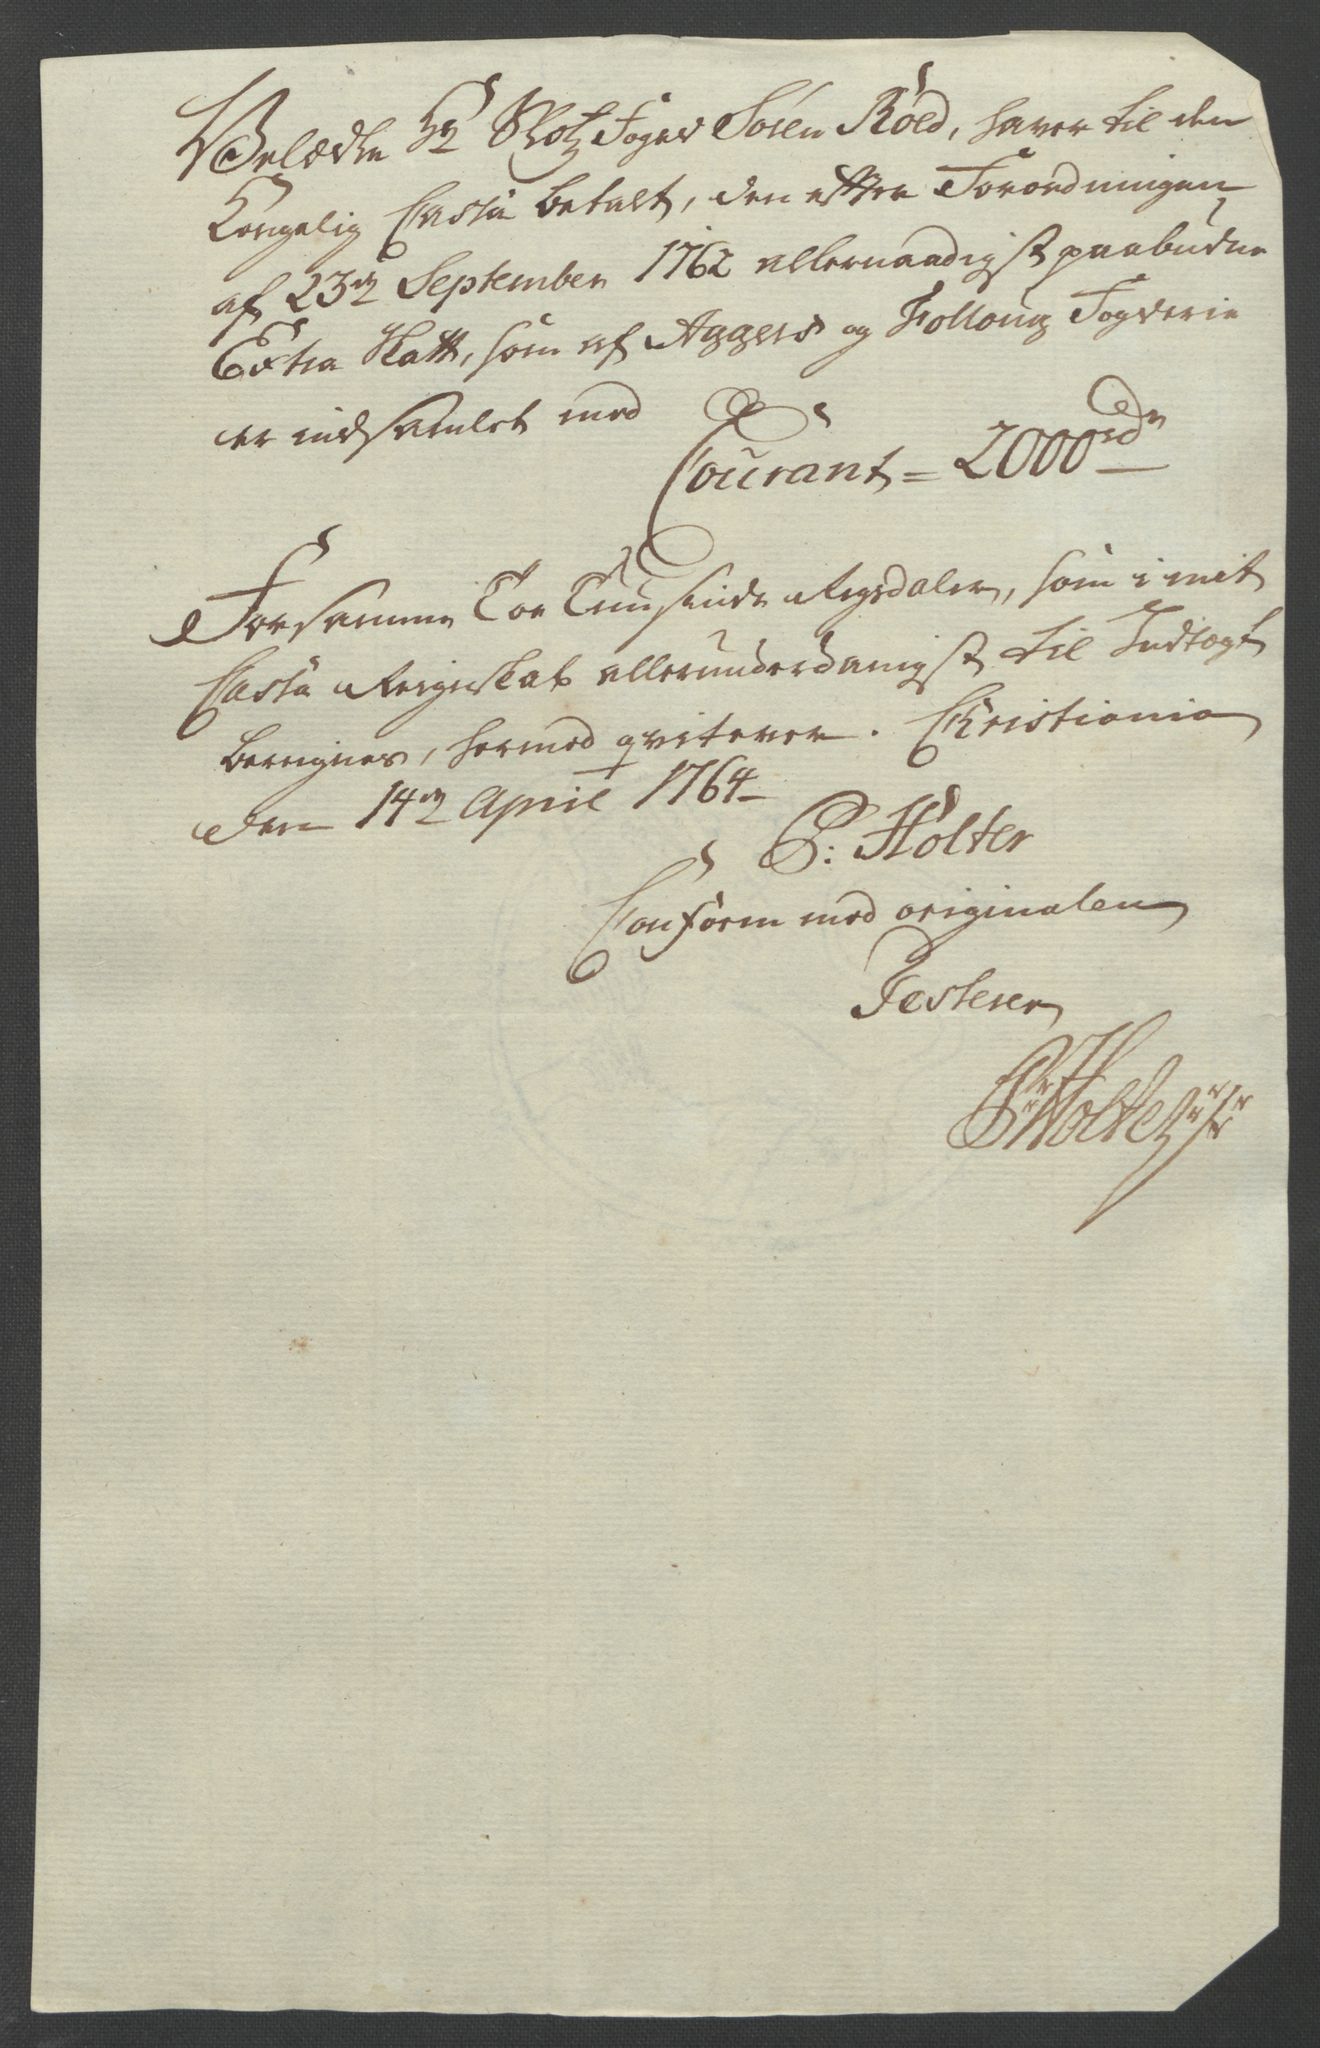 Velædle Hr Slotz Foged Sören Röed, haver til den
Kongelig Cassa betalt, den efter Forordningen
af 23de September 1762 allernaadigst paabudne
Extra Skatt, som af Aggers og Folloug Fogderie
er indsamlet med
Courant = 2000 rdr
Forsamme Toe Tuusinde Rigsdaler, som i mit
Cassa Regnskab allerunderdanigst til Indtægt
beregnes, hermed qviterer. Christiania
den 14de April 1764
P: Holter
Conform med originalen
Testerer
P: Holter